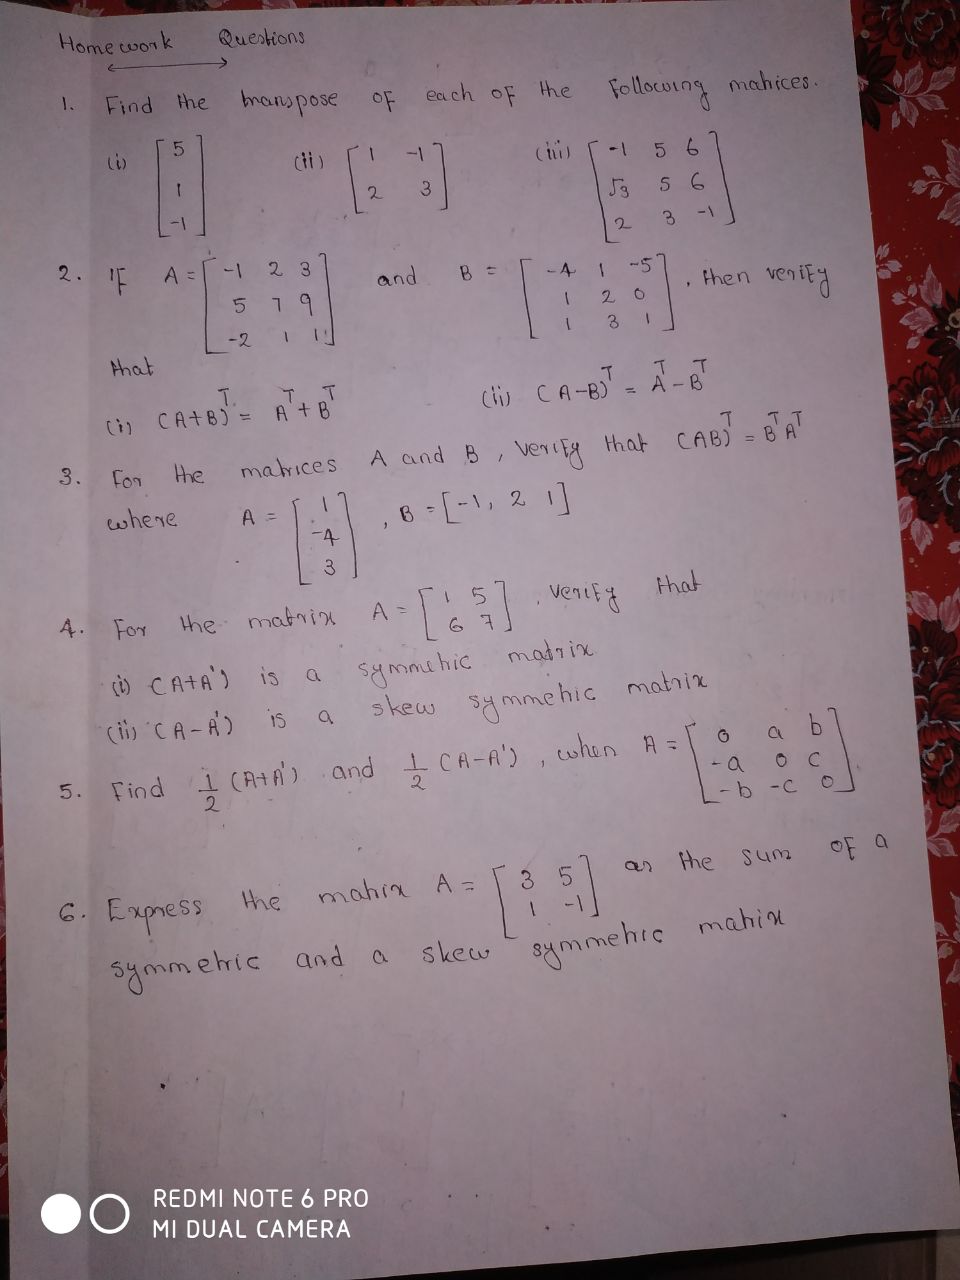 Homework Questions
1. Find the transpose of each of the following matrices.
(i) [5 1 -1] (ii) [1 -1 2 3] (iii) [-1 5 6 √3 5 6 2 3 -1]
2. If A = [-1 2 3 5 7 9 -2 1 1] and B = [-4 1 -5 1 2 0 1 3 1], then verify
that
(i) (A+B)ᵀ = Aᵀ + Bᵀ (ii) (A-B)ᵀ = Aᵀ - Bᵀ
3. For the matrices A and B, verify that (AB)ᵀ = BᵀAᵀ
where A = [1 -4 3], B = [-1, 2 1]
4. For the matrix A = [1 5 6 7], verify that
(i) (A+A') is a symmetric matrix
(ii) (A-A') is a skew symmetric matrix
5. Find 1/2 (A+A') and 1/2 (A-A'), when A = [0 a b -a 0 c -b -c 0].
6. Express the matrix A = [3 5 1 -1] as the sum of a
symmetric and a skew symmetric matrix
REDMI NOTE 6 PRO
MI DUAL CAMERA